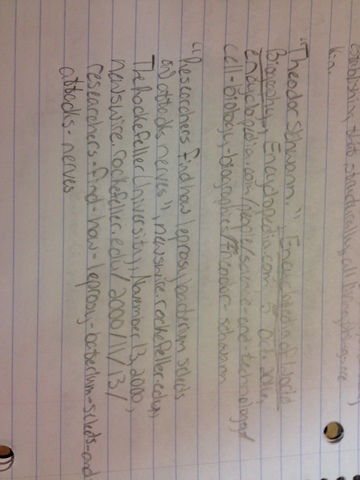 "Theodor Schwann." Encyclopedia of World
Biography, Encyclopedia.com, 5 Oct. 2016,
Encyclopedia.com/people/science-and-technology/
cell-biology-biographies/theodor-schwann
"Researchers find how leprosy bacterium seeks
and attack nerves", newswire.rockefeller.edu,
The Rockefeller University, November 13, 2000,
newswire.rockefeller.edu/2000/11/13/
researchers-find-how-leprosy-baterium-seeks-and
attacks-nerves